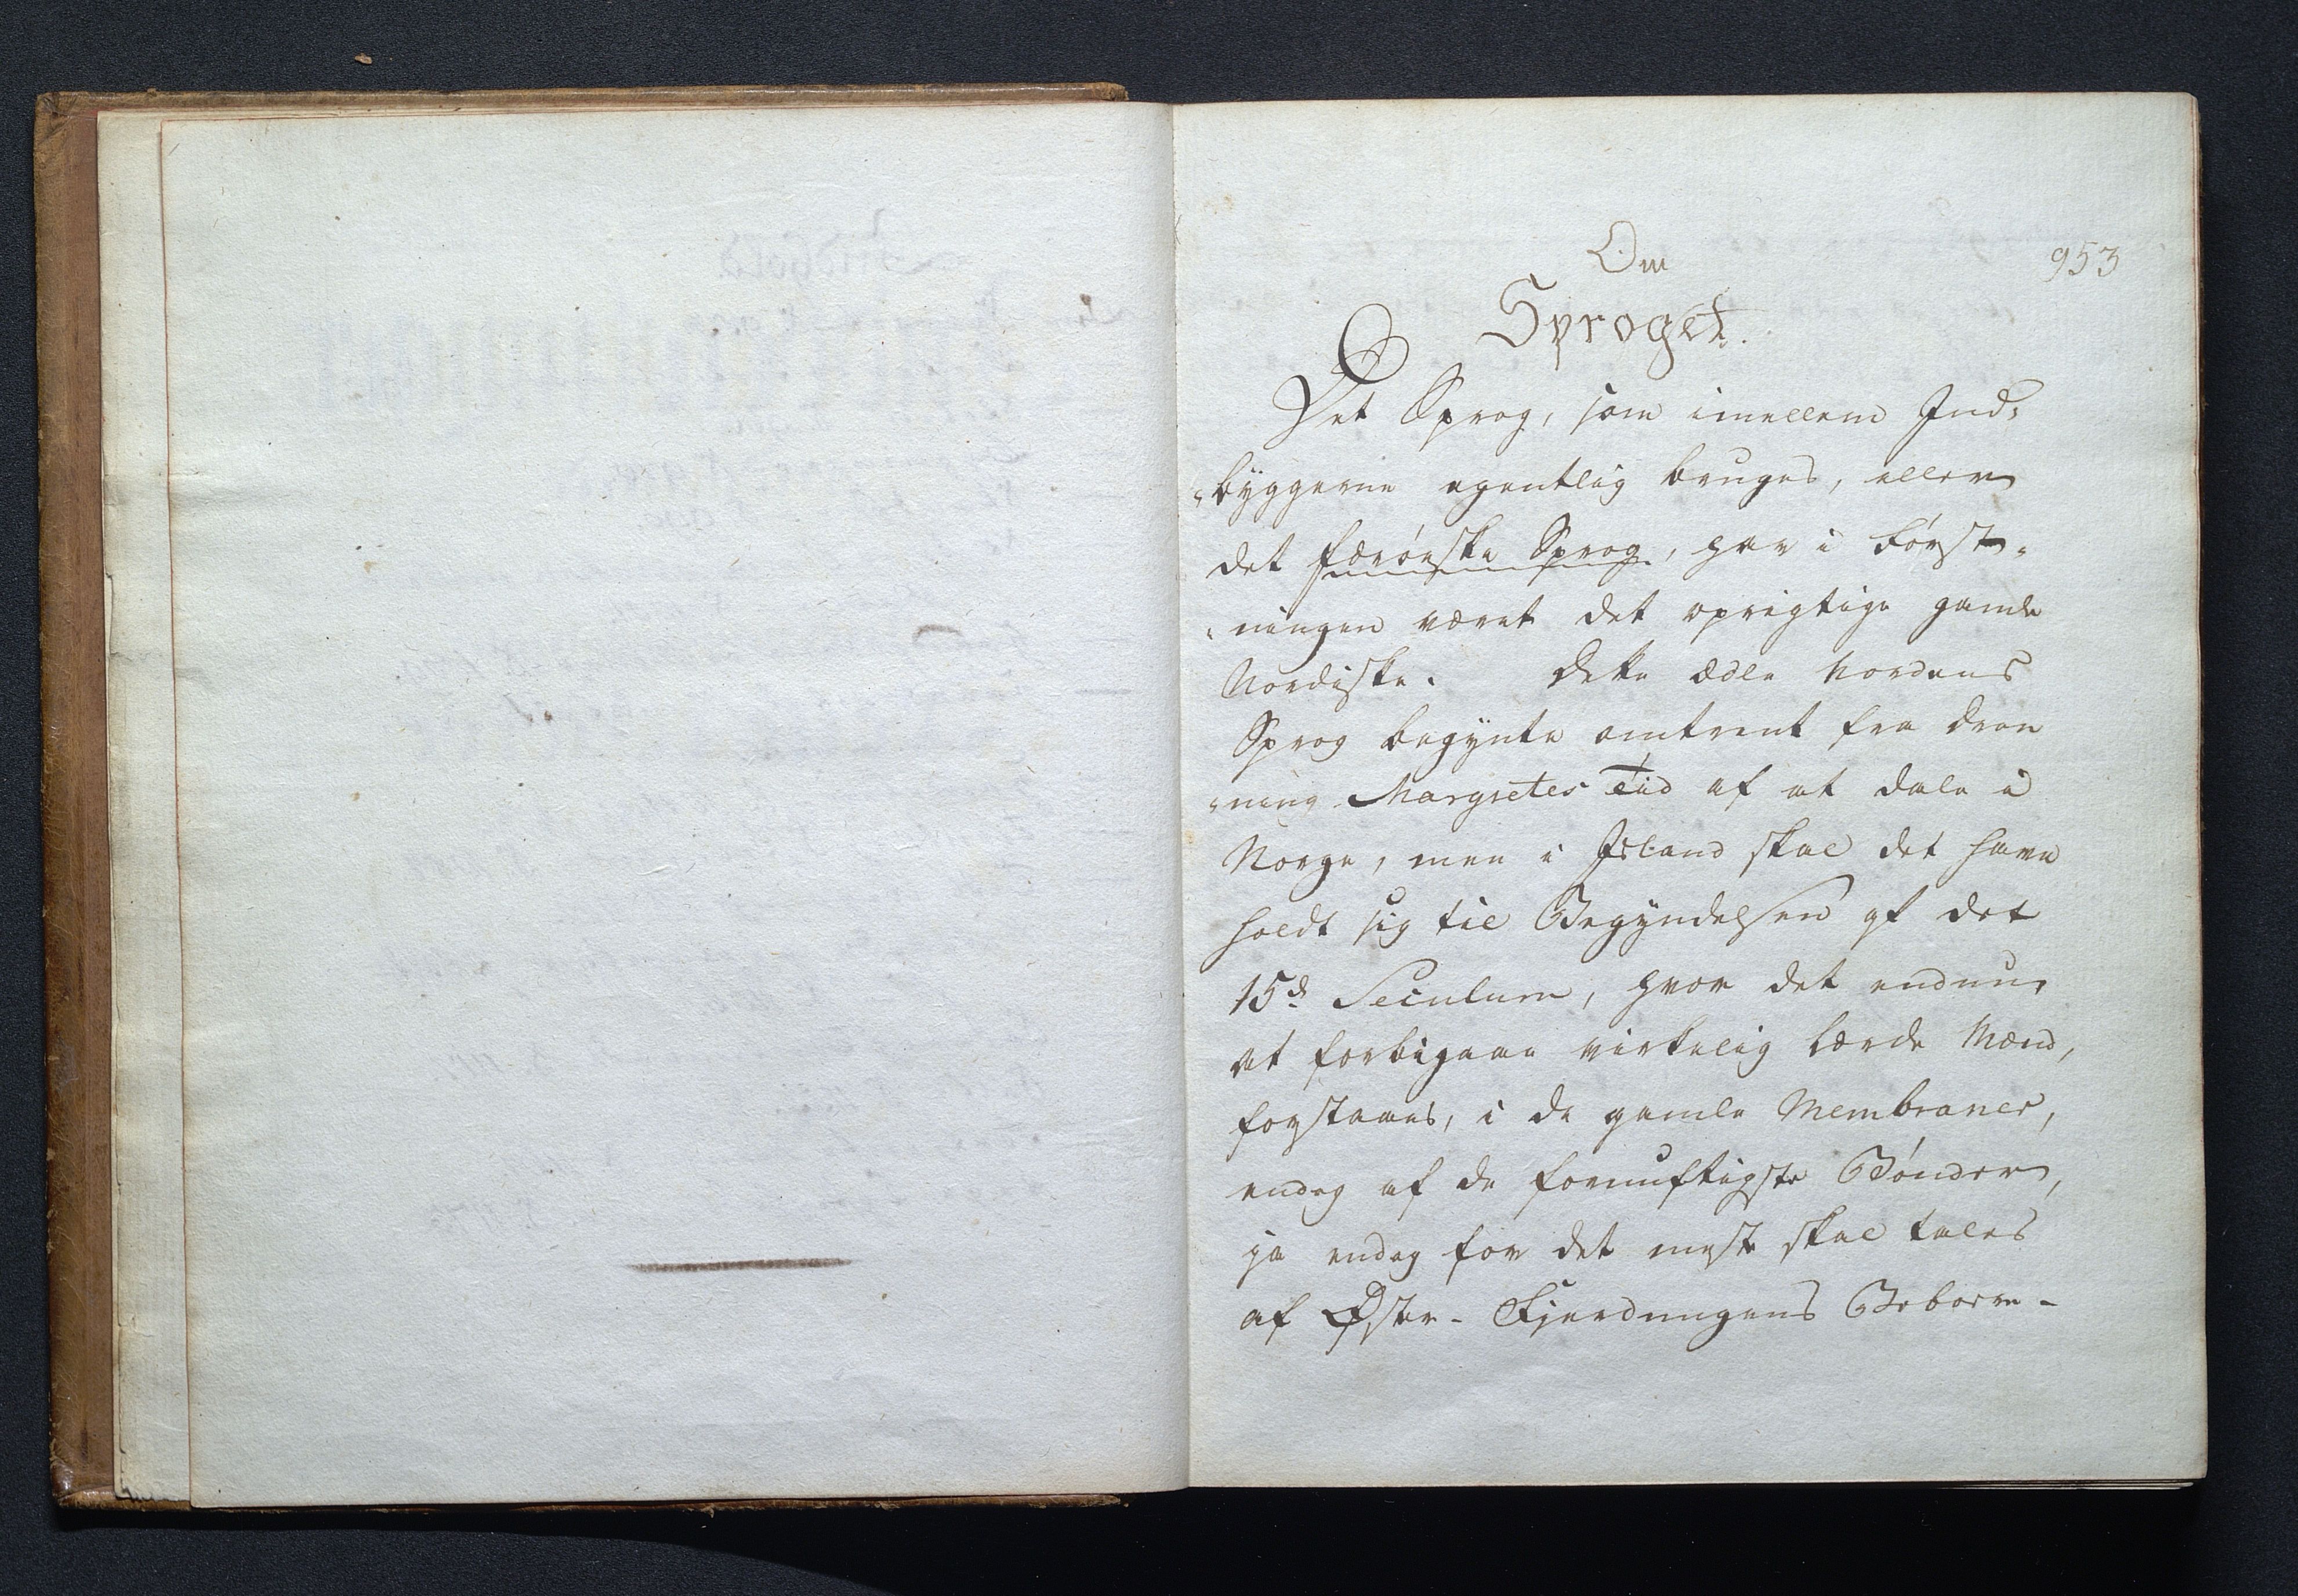 953
Om
Sproget.
Det Sprog, som imellem Ind-
-byggerne egentlig bruges, eller
det færøeske Sprog, har i Først-
-ningen været det oprigtige gamle
Nordiske. Dette ædle Nordens
Sprog begynte omtrent fra Dron
-ning Margretes Tiid af at dale i
Norge, men i Island skal det have
holdt sig til Begyndelsen af det
15d Seculum, hvor det endnu,
at forbigaae virkelig lærde Mænd,
forstaaes, i de gamle Membraner,
endog af de fornuftigste Bønder,
ja endog for det meste skal tales
af Øster-Fjerdungens Beboere-